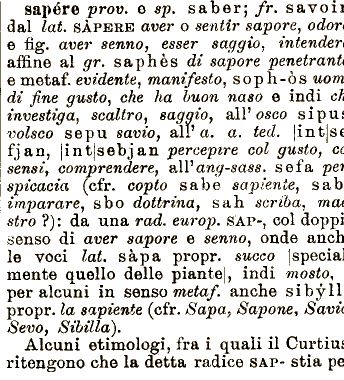 sapére prov. e sp. saber; fr. savoir
dal lat. SÁPERE aver o sentir sapore, odore
e fig. aver senno, esser saggio, intendere
affine al gr. saphès di sapore penetrante
e metaf. evidente, manifesto, soph-òs uom
di fine gusto, che ha buon naso e indi ch
investiga, scaltro, saggio, all' osco sipus
volsco sepu savio, all' a. a. ted. |int|se
fjan, |int|sebjan percepire col gusto, co
sensi, comprendere, all'ang-sass. sefa per
spicacia (cfr. copto sabe sapiente, sab
imparare, sbo dottrina, sah scriba, mae
stro ?): da una rad. europ. SAP-, col doppi
senso di aver sapore e senno, onde anch
le voci lat. sàpa propr. succo |special
mente quello delle piante|, indi mosto,
per alcuni in senso metaf. anche sibýll
propr. la sapiente (cfr. Sapa, Sapone, Savio
Sevo, Sibilla).
Alcuni etimologi, fra i quali il Curtius
ritengono che la detta radice SAP- stia pe